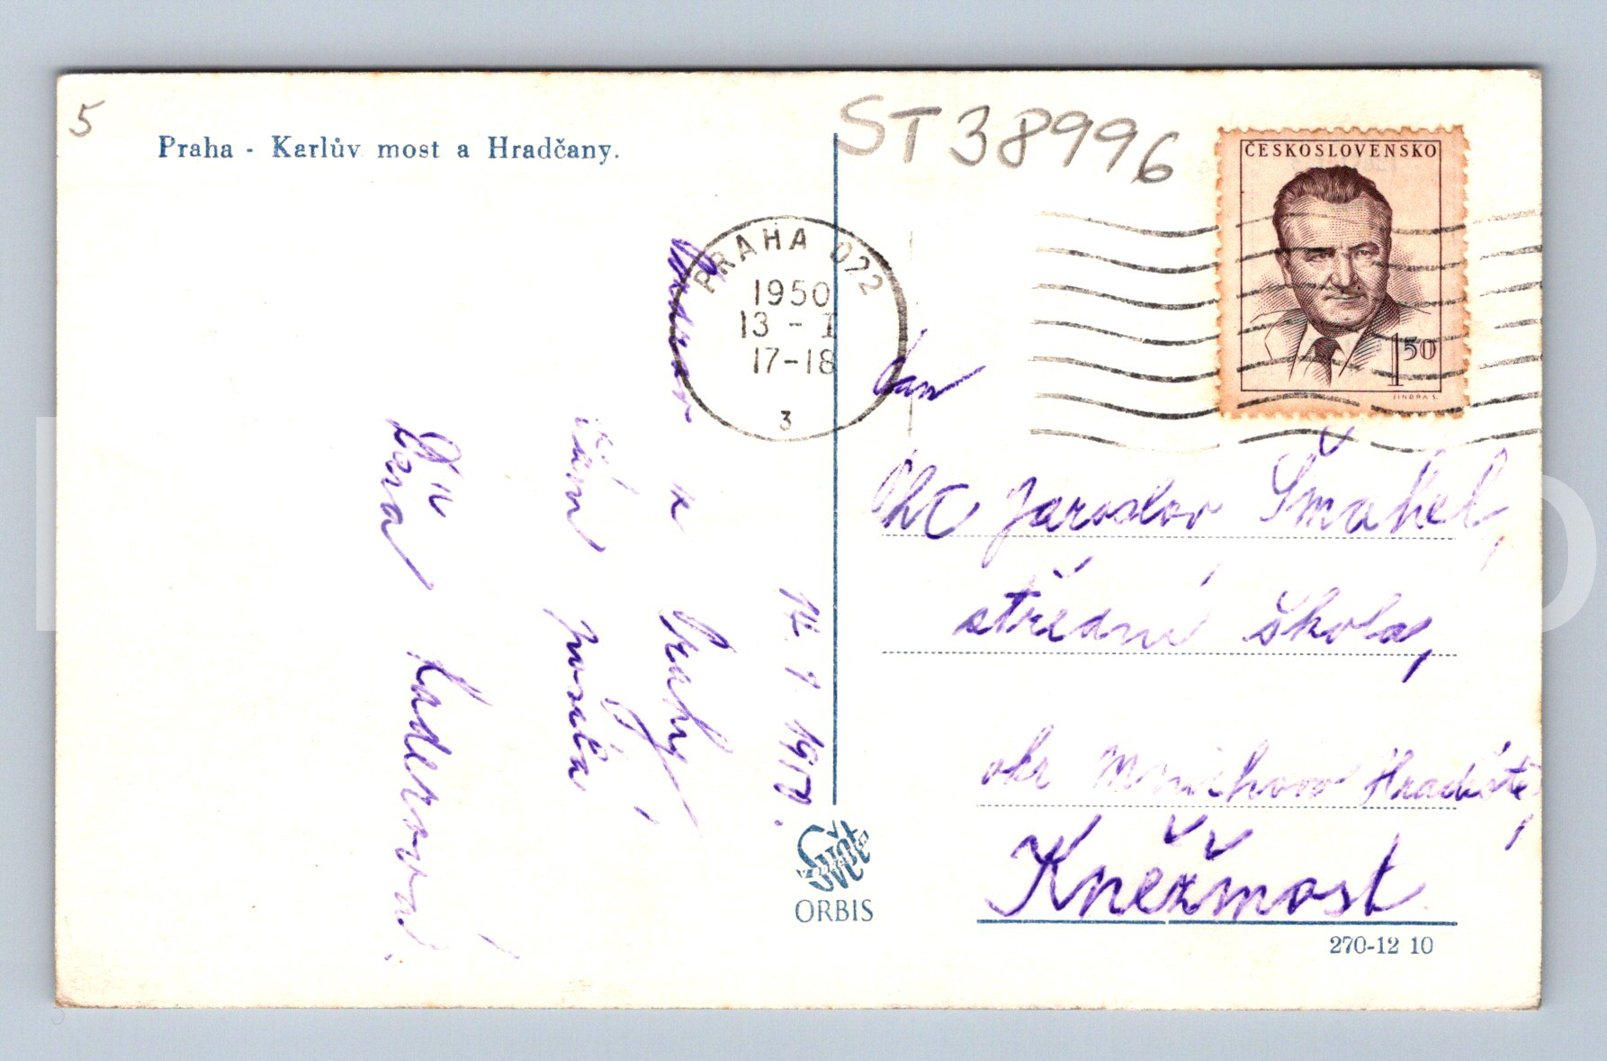 5
ST38996
Praha - Karlův most a Hradčany.
ČESKOSLOVENSKO
1 50
JINDRA S.
PRAHA 022
1950
13 - I
17-18
3
Pozdrav z Prahy
Vám posílá
Kaderova
Pan
Jaroslav Šmahel,
střední škola,
okr Mnichovo Hradiště,
Kněžmost
ORBIS
270-12 10